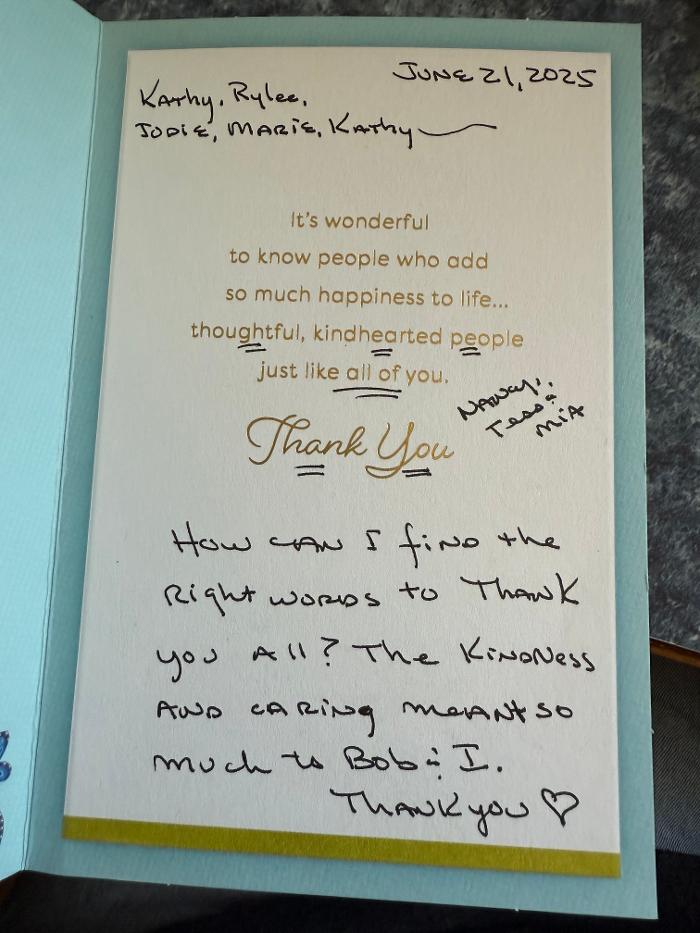 JUNE 21, 2025
Kathy, Rylee,
JODIE, MARIE, Kathy
It's wonderful
to know people who add
so much happiness to life...
thoughtful, kindhearted people
just like all of you.
NANCY,
Tess &
MIA
Thank You
HOW CAN I find the
Right WORDS to THANK
you All? The KINDNess
AND CARING MEANT SO
much to Bob & I.
THANK you ♡